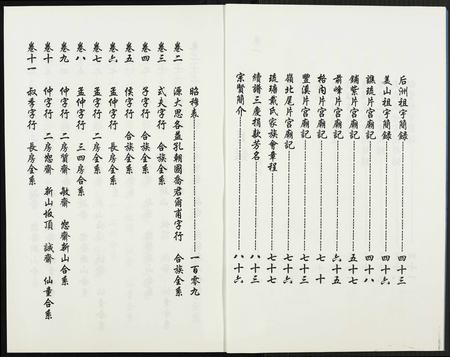 后洲祖宇簡錄 四十三
美山祖宇簡錄 四十六
譙琉片宫廟記 四十八
鋪紫片宫廟記 五十七
前峰片宫廟記 六十五
格内片宫廟記 七十
豐溪片宫廟記 七十三
嶺北尾片宫廟記 七十六
琉塘戴氏家族會章程 七十七
續譜三慶捐款芳名 八十三
宗賢簡介 八十六
昭穆卷 一百零九
卷二 源大思各並孔朝國喬君爾甫字行 合族全系
卷三 式夫字行 合族全系
卷四 子字行 合族全系
卷五 侯字行 合族全系
卷六 孟仲字行 長房全系
卷七 孟字行 二房全系
卷八 孟仲字行 三四房合系
卷九 仲字行 二房質齋 敏齋 恕齋新山合系
卷十 仲字行 二房恕齋 新山坂頂 誠齋 仙董合系
卷十一 叔季字行 長房全系